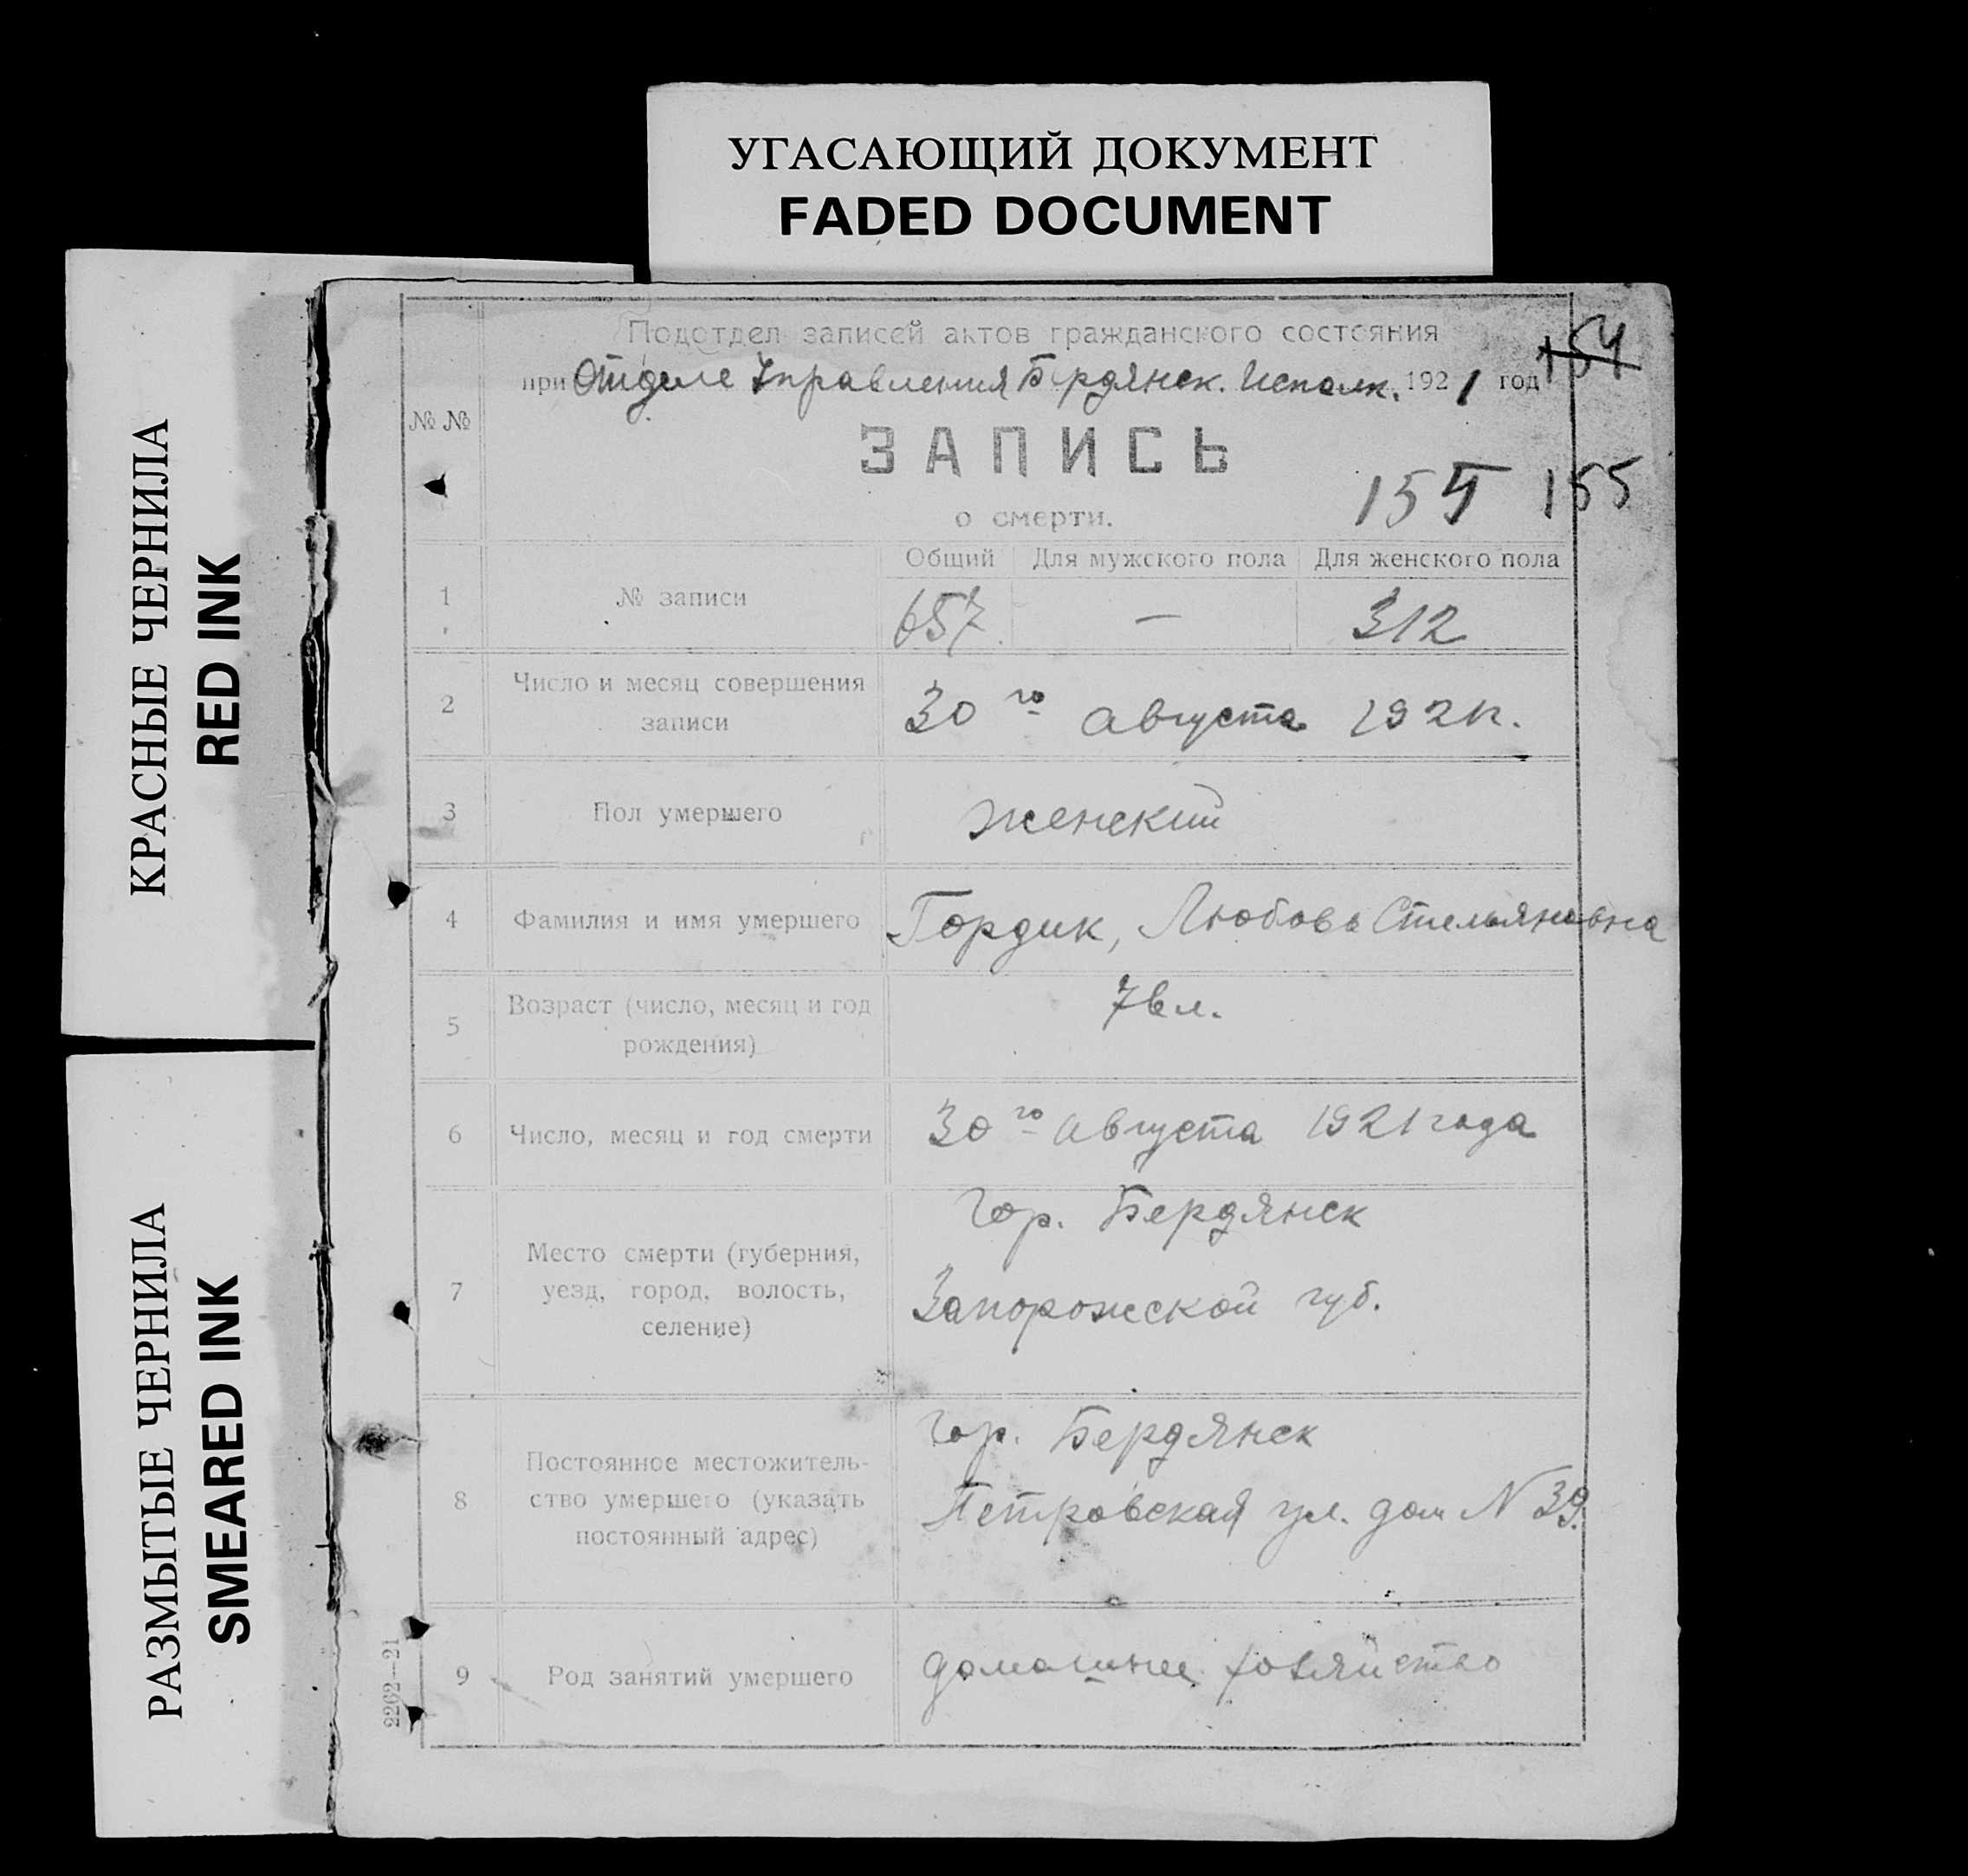 УГАСАЮЩИЙ ДОКУМЕНТ
FADED DOCUMENT
КРАСНЫЕ ЧЕРНИЛА
RED INK
РАЗМЫТЫЕ ЧЕРНИЛА
SMEARED INK
Подотдел записей актов гражданского состояния
154
при Отделе Управления Бердянск. Исполк. 1921 год
№ №
ЗАПИСЬ
155 155
о смерти.
Общий Для мужского пола Для женского пола
1 № записи 657 — 312
2 Число и месяц совершения
записи
30го августа 1921г.
3 Пол умершего женский
4 Фамилия и имя умершего Гордик, Любовь Стельяновна
5 Возраст (число, месяц и год
рождения)
76 л.
6 Число, месяц и год смерти 30го августа 1921 года
7 Место смерти (губерния,
уезд, город, волость,
селение)
гор. Бердянск
Запорожской губ.
8 Постоянное местожитель-
ство умершего (указать
постоянный адрес)
гор. Бердянск
Петровская ул. дом N 39.
9 Род занятий умершего домашнее хозяйство
2262—21